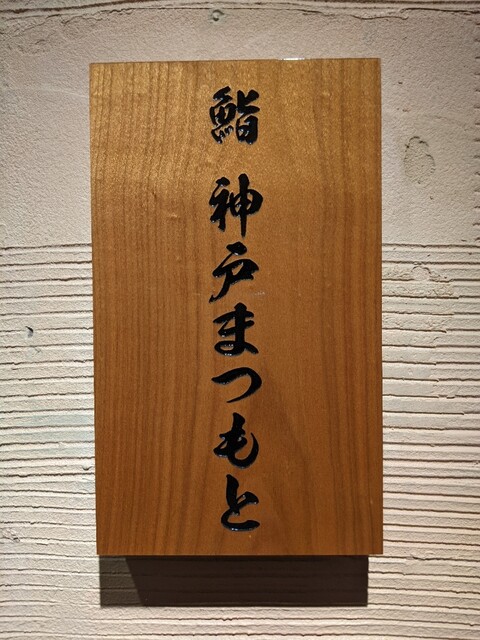 鮨 神戸まつもと